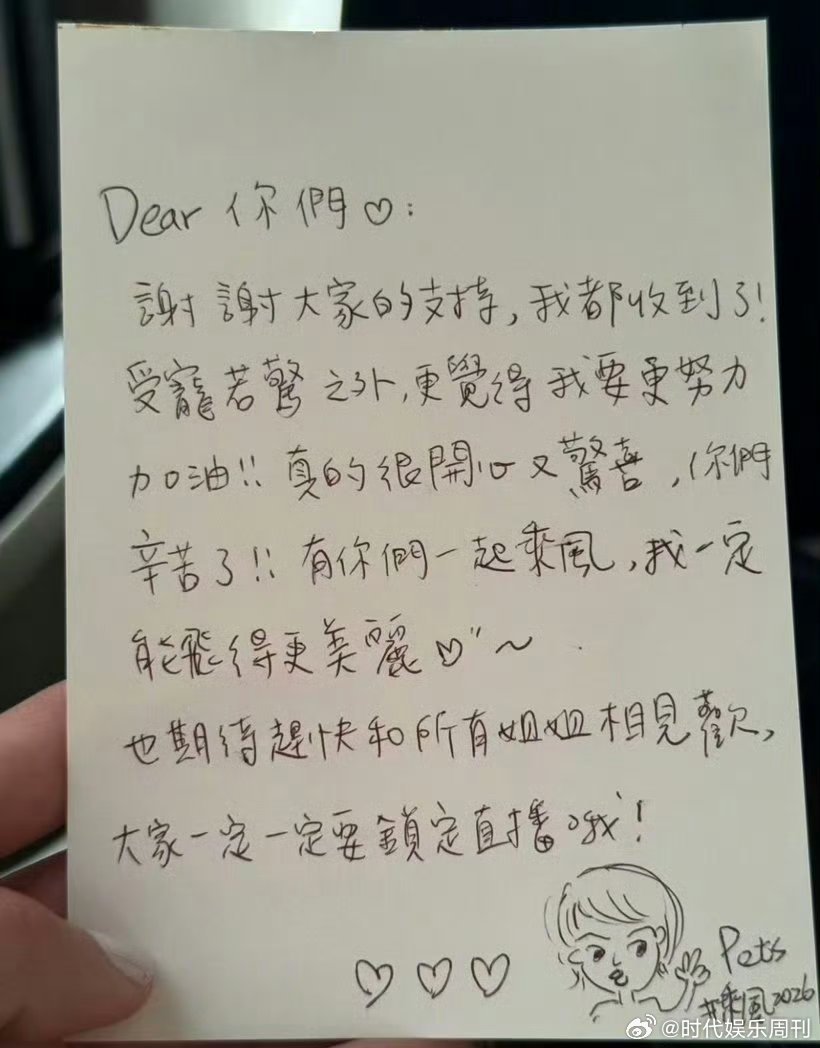 Dear 你們♡:
謝謝大家的支持,我都收到了!
受寵若驚之外,更覺得我要更努力
加油!! 真的很開心又驚喜,你們
辛苦了!! 有你們一起乘風,我一定
能飛得更美麗♡"~
也期待趕快和所有姐姐相見歡,
大家一定一定要鎖定直播哦!
♡♡♡
Pets
#乘風2026
@时代娱乐周刊